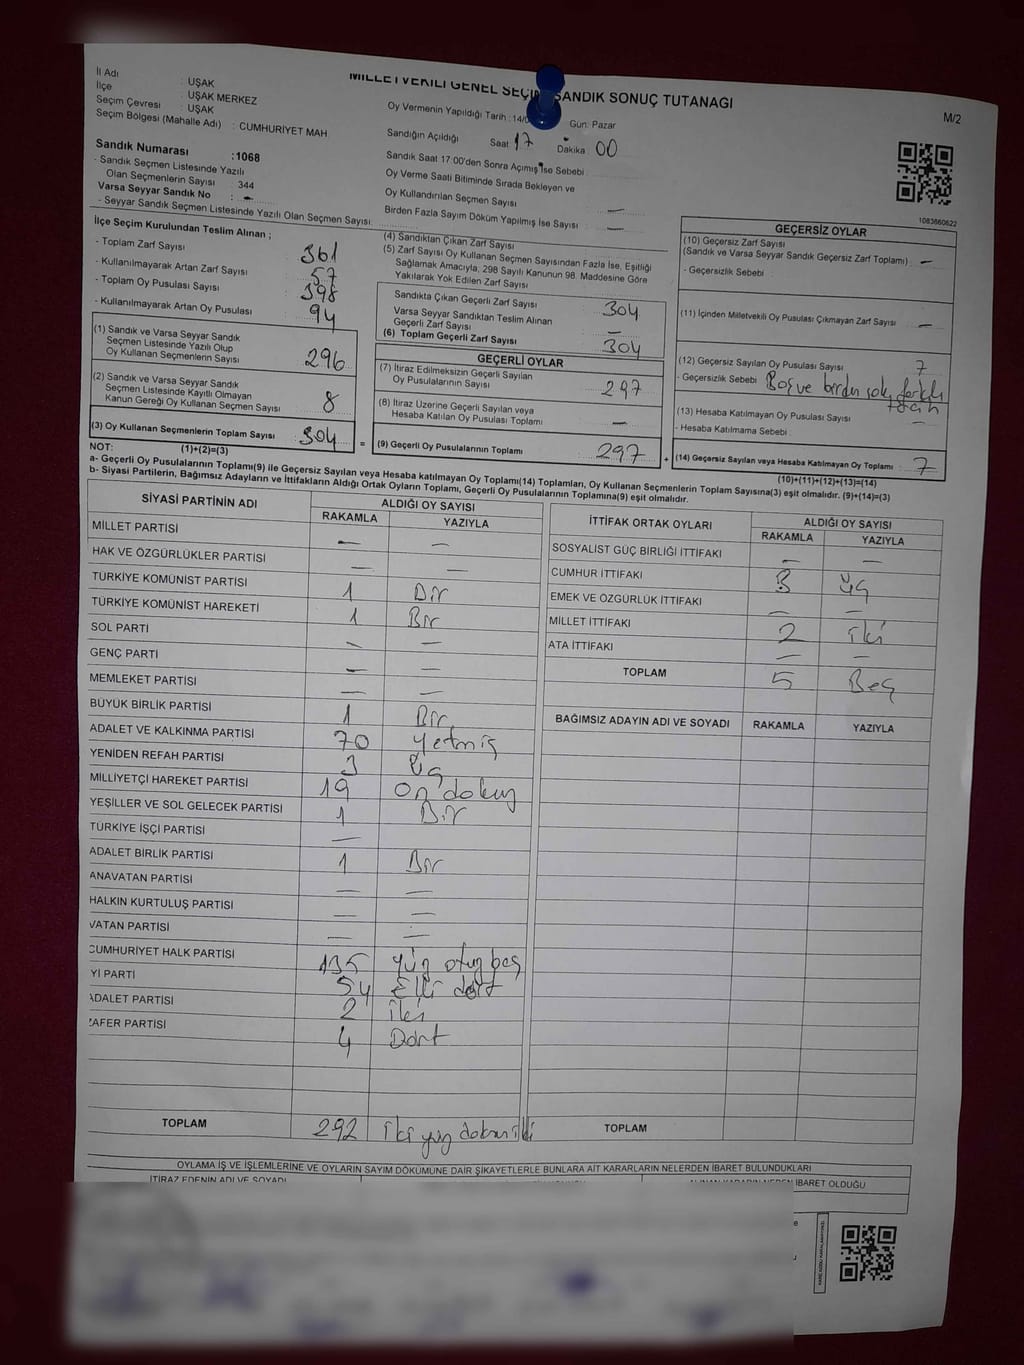 MİLLETVEKİLİ GENEL SEÇİM SANDIK SONUÇ TUTANAĞI
M/2
İl Adı : UŞAK
İlçe : UŞAK MERKEZ
Seçim Çevresi : UŞAK
Seçim Bölgesi (Mahalle Adı) : CUMHURİYET MAH
Sandık Numarası :1068
- Sandık Seçmen Listesinde Yazılı
Olan Seçmenlerin Sayısı : 344
Varsa Seyyar Sandık No : -
- Seyyar Sandık Seçmen Listesinde Yazılı Olan Seçmen Sayısı:
Oy Vermenin Yapıldığı Tarih :14/0 Gün: Pazar
Sandığın Açıldığı Saat 17 Dakika 00
Sandık Saat 17:00'den Sonra Açılmış İse Sebebi
Oy Verme Saati Bitiminde Sırada Bekleyen ve
Oy Kullandırılan Seçmen Sayısı —
Birden Fazla Sayım Döküm Yapılmış İse Sayısı —
1083660622
İlçe Seçim Kurulundan Teslim Alınan ;
- Toplam Zarf Sayısı 361
- Kullanılmayarak Artan Zarf Sayısı 57
- Toplam Oy Pusulası Sayısı 398
- Kullanılmayarak Artan Oy Pusulası 94
(1) Sandık ve Varsa Seyyar Sandık
Seçmen Listesinde Yazılı Olup
Oy Kullanan Seçmenlerin Sayısı 296
(2) Sandık ve Varsa Seyyar Sandık
Seçmen Listesinde Kayıtlı Olmayan
Kanun Gereği Oy Kullanan Seçmen Sayısı 8
(3) Oy Kullanan Seçmenlerin Toplam Sayısı 304
(1)+(2)=(3)
(4) Sandıktan Çıkan Zarf Sayısı
(5) Zarf Sayısı Oy Kullanan Seçmen Sayısından Fazla İse, Eşitliği
Sağlamak Amacıyla, 298 Sayılı Kanunun 98. Maddesine Göre
Yakılarak Yok Edilen Zarf Sayısı
Sandıkta Çıkan Geçerli Zarf Sayısı 304
Varsa Seyyar Sandıktan Teslim Alınan
Geçerli Zarf Sayısı —
(6) Toplam Geçerli Zarf Sayısı 304
GEÇERLİ OYLAR
(7) İtiraz Edilmeksizin Geçerli Sayılan
Oy Pusulalarının Sayısı 297
(8) İtiraz Üzerine Geçerli Sayılan veya
Hesaba Katılan Oy Pusulası Toplamı —
= (9) Geçerli Oy Pusulalarının Toplamı 297 +
GEÇERSİZ OYLAR
(10) Geçersiz Zarf Sayısı
(Sandık ve Varsa Seyyar Sandık Geçersiz Zarf Toplamı) : —
- Geçersizlik Sebebi :
(11) İçinden Milletvekili Oy Pusulası Çıkmayan Zarf Sayısı —
(12) Geçersiz Sayılan Oy Pusulası Sayısı 7
- Geçersizlik Sebebi Boş ve birden
(13) Hesaba Katılmayan Oy Pusulası Sayısı —
- Hesaba Katılmama Sebebi :
(14) Geçersiz Sayılan veya Hesaba Katılmayan Oy Toplamı : 7
(10)+(11)+(12)+(13)=(14)
NOT:
a- Geçerli Oy Pusulalarının Toplamı(9) ile Geçersiz Sayılan veya Hesaba katılmayan Oy Toplamı(14) Toplamları, Oy Kullanan Seçmenlerin Toplam Sayısına(3) eşit olmalıdır. (9)+(14)=(3)
b- Siyasi Partilerin, Bağımsız Adayların ve İttifakların Aldığı Ortak Oyların Toplamı, Geçerli Oy Pusulalarının Toplamına(9) eşit olmalıdır.
SİYASİ PARTİNİN ADI ALDIĞI OY SAYISI
RAKAMLA YAZIYLA
MİLLET PARTİSİ — —
HAK VE ÖZGÜRLÜKLER PARTİSİ — —
TÜRKİYE KOMÜNİST PARTİSİ 1 Bir
TÜRKİYE KOMÜNİST HAREKETİ 1 Bir
SOL PARTİ — —
GENÇ PARTİ — —
MEMLEKET PARTİSİ — —
BÜYÜK BİRLİK PARTİSİ 1 Bir
ADALET VE KALKINMA PARTİSİ 70 yetmiş
YENİDEN REFAH PARTİSİ 3 Üç
MİLLİYETÇİ HAREKET PARTİSİ 19 on dokuz
YEŞİLLER VE SOL GELECEK PARTİSİ 1 Bir
TÜRKİYE İŞÇİ PARTİSİ —
ADALET BİRLİK PARTİSİ 1 Bir
ANAVATAN PARTİSİ — —
HALKIN KURTULUŞ PARTİSİ — —
VATAN PARTİSİ — —
CUMHURİYET HALK PARTİSİ 135 yüz otuz beş
YI PARTİ 54 Elli dört
ADALET PARTİSİ 2 iki
ZAFER PARTİSİ 4 Dört
TOPLAM 292 iki yüz doksan iki
İTTİFAK ORTAK OYLARI ALDIĞI OY SAYISI
RAKAMLA YAZIYLA
SOSYALİST GÜÇ BİRLİĞİ İTTİFAKI — —
CUMHUR İTTİFAKI 3 üç
EMEK VE ÖZGÜRLÜK İTTİFAKI — —
MİLLET İTTİFAKI 2 iki
ATA İTTİFAKI — —
TOPLAM 5 Beş
BAĞIMSIZ ADAYIN ADI VE SOYADI RAKAMLA YAZIYLA
TOPLAM
OYLAMA İŞ VE İŞLEMLERİNE VE OYLARIN SAYIM DÖKÜMÜNE DAİR ŞİKAYETLERLE BUNLARA AİT KARARLARIN NELERDEN İBARET BULUNDUKLARI
İTİRAZ EDENİN ADI VE SOYADI
ALINAN KARARIN NEDEN İBARET OLDUĞU